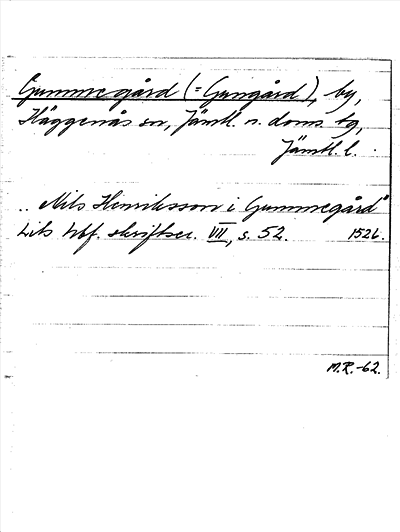 Gummegård (= Gumgård), by,
Häggenås sn, Jämtl. n. doms. tg,
Jämtl. l.
.. Nils Henriksson i Gummegård"
Lits hbf. skriftser. VII, s. 52. 1526.
M.R.-62.